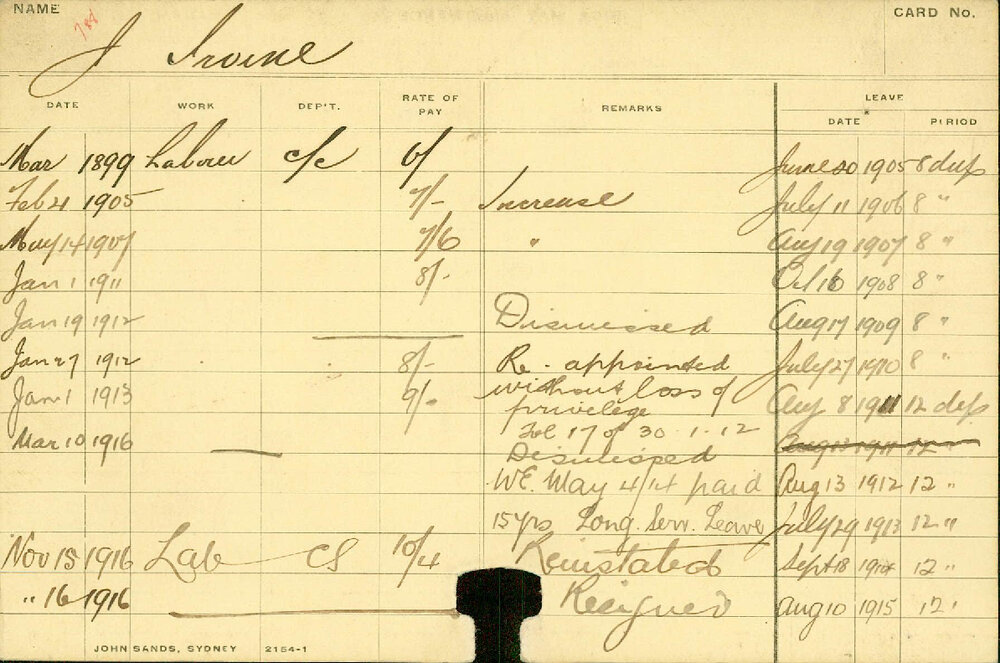 NAME
CARD No.
J Irvine
DATE WORK DEP'T. RATE OF PAY REMARKS LEAVE
DATE PERIOD
Mar 1899 Labourer c/c 6/ June 20 1905 8 days
Feb 21 1905 7/- Increase July 11 1906 8 "
May 14 1907 7/6 " Aug 19 1907 8 "
Jan 1 1911 8/- Oct 16 1908 8 "
Jan 19 1912 Dismissed Aug 17 1909 8 "
Jan 27 1912 8/- Re-appointed July 27 1910 8 "
Jan 1 1913 9/- without loss of Aug 8 1911 12 days
privilege
Fol 17 of 30.1.12
Mar 10 1916 Dismissed
WE. May 4/14 paid Aug 13 1912 12 "
15 yrs Long. Serv. Leave July 29 1913 12 "
Nov 15 1916 Lab CS 10/4 Reinstated Sept 18 1914 12 "
" 16 1916 Resigned Aug 10 1915 12 "
JOHN SANDS, SYDNEY 2154-1